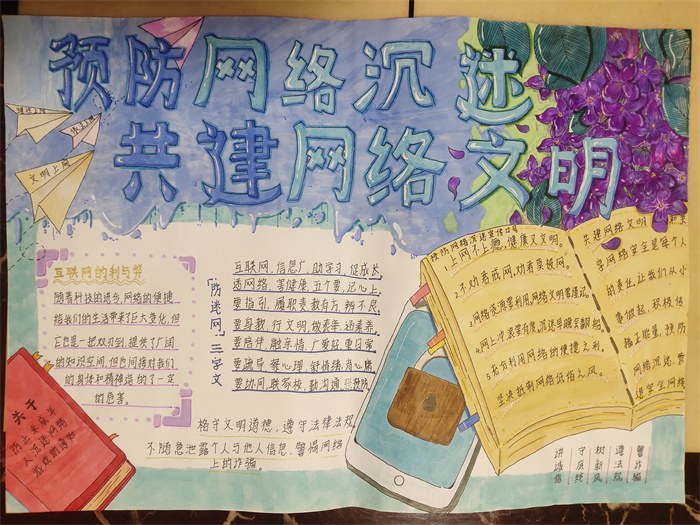 预防网络沉迷
共建网络文明
文明上网
互联网的利与弊
随着科技的进步,网络的便捷
给我们的生活带来了巨大变化,但
它也是一把双刃剑,提供了广阔
的知识空间,但也间接对我们
的身体和精神造成了一定
的危害。
“防迷网”三字文
互联网,信息广,助学习,促成长,
迷网络,害健康,五个要,记心上,
要指引,履职责,教有方,辨不良,
要身教,行文明,做表率,涵素养,
要陪伴,融亲情,广爱好,重日常,
要疏导,察心理,舒情绪,育心康,
要协同,联家校,勤沟通,强预防
恪守文明道德,遵守法律法规,
不随意泄露个人与他人信息,警惕网络
上的诈骗。
关于
防止未成年
人沉迷网络
预防网络沉迷宣传口号
1.上网不上瘾,健康又文明。
2.不劝君戒网,劝君莫痴网。
3.网络资源要利用,网络文明要谨记。
4.网上冲浪有度,沉迷导致全翻船
5.若有利用网络的便捷之利,
坚决抵制网络低俗之风。
共建网络文明
享网络安全是每个人
的责任,让我们从小
事做起,积极传
播正能量,预防
网络沉迷,营
造安全网络
讲诚信
守底线
树新风
遵法规
警诈骗